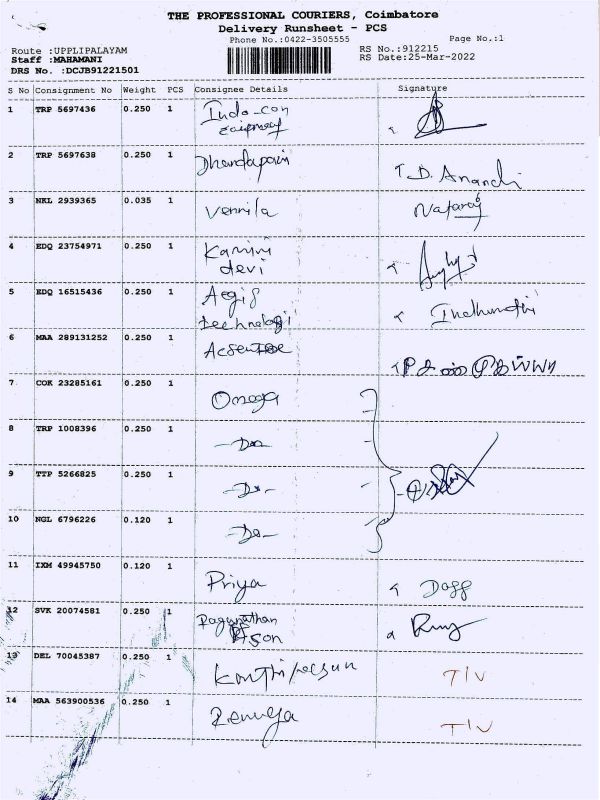 THE PROFESSIONAL COURIERS, Coimbatore
Delivery Runsheet - PCS
Phone No.:0422-3505555
Page No.:1
Route :UPPLIPALAYAM
RS No.:912215
Staff :MAHAMANI
RS Date:25-Mar-2022
DRS No. :DCJB91221501
S No Consignment No Weight PCS Consignee Details Signature
1 TRP 5697436 0.250 1 Indo-con
2 TRP 5697638 0.250 1 Dhandapani D. Anandhi
3 NKL 2939365 0.035 1 Vennila Nataraj
4 EDQ 23754971 0.250 1 Kamini
devi
5 EDQ 16515436 0.250 1 Aegis
technologi
6 MAA 289131252 0.250 1
7 COK 23285161 0.250 1 Omega
8 TRP 1008396 0.250 1 -Do-
9 TTP 5266825 0.250 1 -Do-
10 NGL 6796226 0.120 1 -Do-
11 IXM 49945750 0.120 1 Priya
12 SVK 20074581 0.250 1 Ragunathan
son
13 DEL 70045387 0.250 1 T/V
14 MAA 563900536 0.250 1 Renuga T/V